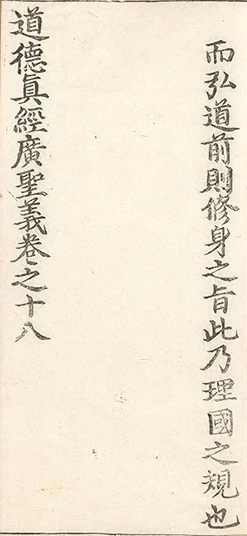 而弘道前則修身之旨此乃理國之規也
道德真經廣聖義卷之十八